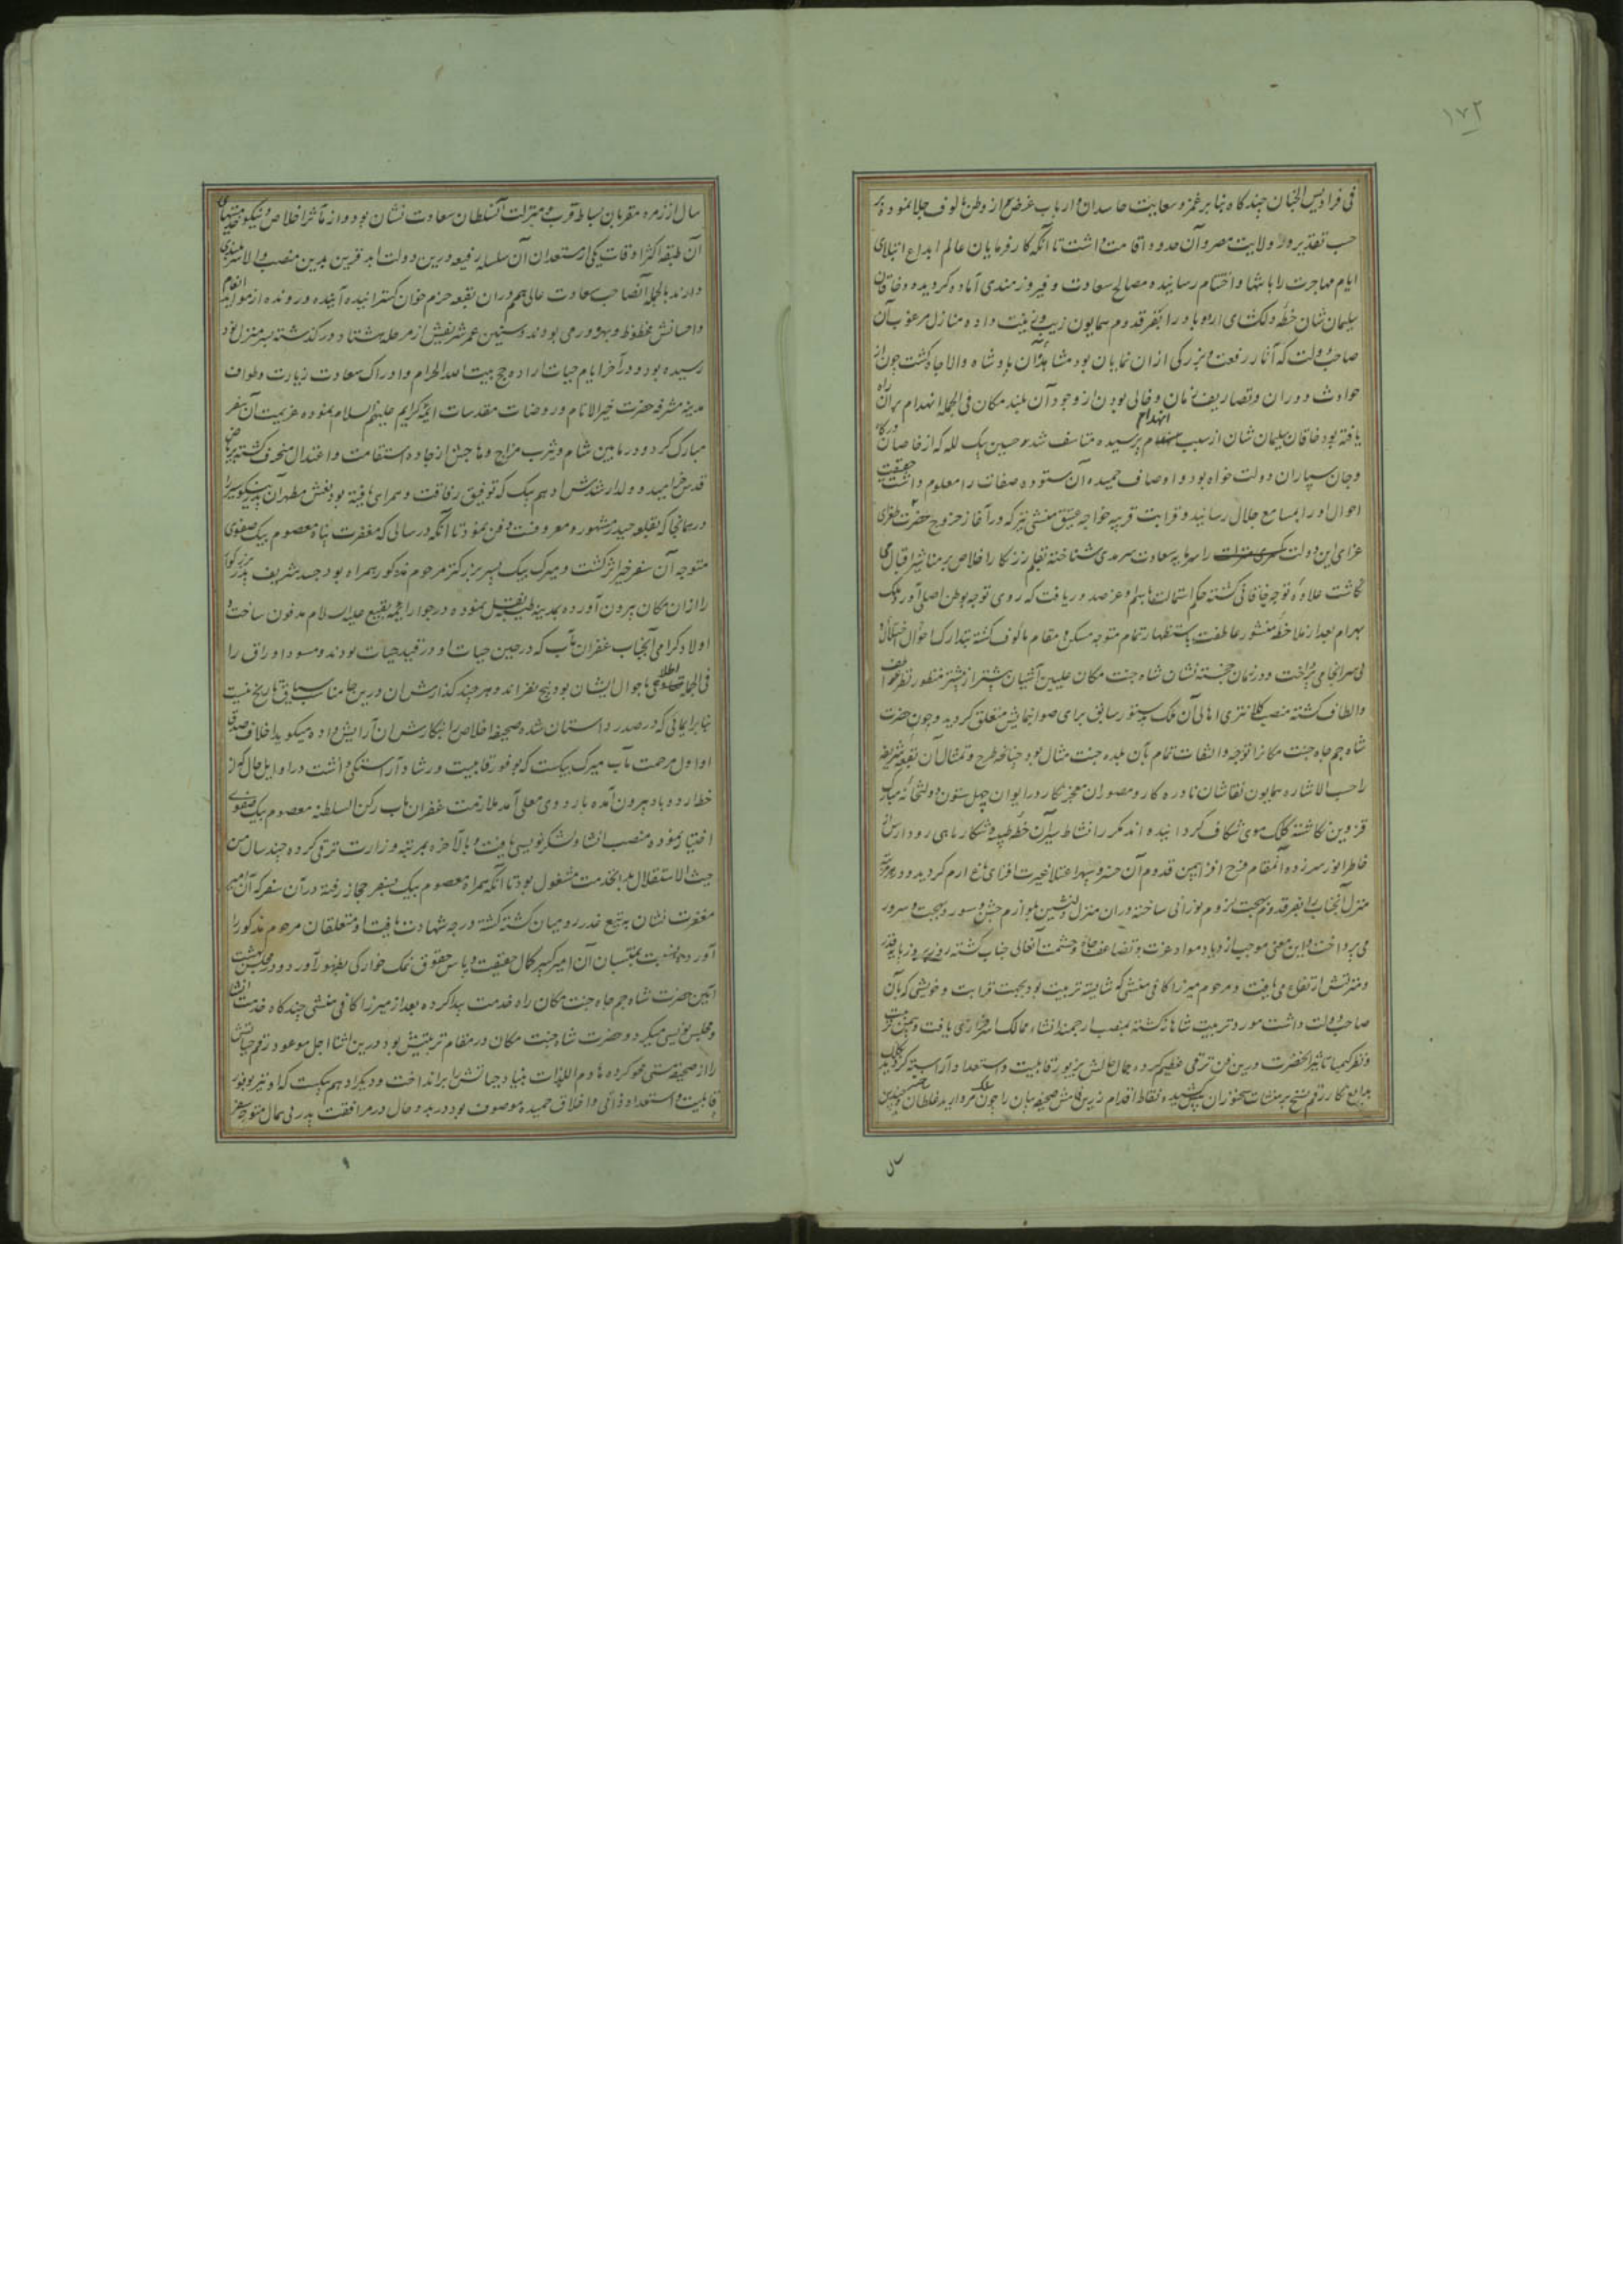 ١٧٢
فی فرادیس الجنان چند کاه بنابر غمز و سعایت حاسدان و ارباب غرض از وطن مالوف جلا نموده بر
حسب تقدیر در ولایت مصر و آن حدود اقامت داشت تا آنکه کار فرمایان عالم ابداع ابتلای
ایام مهاجرت را بانتها و اختتام رسانیده مصالح سعادت و فیروزمندی آماده کردید و خاقان
سلیمان شان خطه دلکشای اردوباد را بفر قدوم همایون زیب و زینت داده منازل مرغوب آن
صاحب دولت که آثار رفعت و بزرکی از ان نمایان بود مشاهد آن پادشاه والاجاه کشت چون از
حوادث دوران و تصاریف زمان و خالی بودن از وجود آن بلند مکان فی الجمله انهدام بران راه
یافته بود خاقان سلیمان شان از سبب انهدام پرسیده متاسف شد و حسین بیک لله که از خاصان درکاه
و جان سپاران دولت خواه بود و اوصاف حمیده آن ستوده صفات را معلوم داشت حقیقت
احوال او را بمسامع جلال رسانید و قرابت قریبه خواجه عتیق منشی نیز که در آغاز خروج حضرت طغرای
غرای این دولت را سرمایه سعادت سرمدی شناخته بقلم زرنکار اخلاص بر مناشیر اقبال می
نکاشت علاوه توجه خاقانی کشته حکم استمالت باسم او عز صدور یافت که روی توجه بوطن اصلی آورد ملک
بهرام بعد از ملاحظه منشور عاطفت باستظهار تمام متوجه مسکن و مقام مالوف کشته بتدارک احوال اختلال و
بی سرانجامی پرداخت و در زمان خجسته نشان شاه جنت مکان علیین آشیان بیشتر از پیشتر منظور نظر عواطف
و الطاف کشته منصب کلانتری اهالی آن ملک بدستور سابق برای صوابنمایش متعلق کردید و چون حضرت
شاه جم جاه جنت مکان را توجه و التفات تمام بآن بلده جنت مثال بود چنانچه طرح و تمثال آن بقعه شریفه
را حسب الاشاره همایون نقاشان نادره کار و مصوران معجز نکار در ایوان چهل ستون دولتخانه مبارک
قزوین نکاشته کلک موی شکاف کردانیده اند مکرر انشاط سیر آن خطه طیبه و شکار ماهی رود ارس از
خاطر انور سر زده آنمقام فرح افزا بیمن قدوم آن خسرو سپهر اعتلا غیرت افزای باغ ارم کردید و در هر مرتبه
منزل آنجناب را بفر قدوم بهجت لزوم نورانی ساخته در ان منزل دلنشین بلوازم جشن و سور و بهجت و سرور
می پرداخت و این معنی موجب ازدیاد مواد عزت و تضاعف جاه و حشمت آنعالی جناب کشته روز بروز پایه قدر
و منزلتش ارتفاع می یافت و مرحوم میرزا کافی منشی که شایسته تربیت بود بجهت قرابت و خویشی که بآن
صاحب دولت داشت مورد تربیت شاهانه کشته بمنصب ارجمند انشاء ممالک سرافرازی یافت و بیمن تربیت
و نظر کیمیا تاثیر آنحضرت درین فن ترقی عظیم کرده جمال حالش بزیور قابلیت و استعداد آراسته کردید کلک
بدایع نکار رقم نسخ بر منشات سخنوران پیش کشیده نقاط اقدام زرین قامش صحیفه بیان را چون سلک مروارید غلطان
سال از زمره مقربان بساط قرب و منزلت آنسلطان سعادت نشان بود و از مآثر اخلاص و نیکو خدمتیهای
آن طبقه اکثر اوقات یکی از مستعدان آن سلسله رفیعه درین دولت ابد قرین بدین منصب والا سربلندی
دارند بالجمله آنصاحب سعادت عالی همم در ان بقعه خرم خوان کسترانیده آینده و رونده از موائد انعام
و احسانش محظوظ و بهره ور می بودند و سنین عمر شریفش از مرحله هشتاد در کذشته بسر منزل نود
رسیده بود و در آخر ایام حیات اراده حج بیت الله الحرام و ادراک سعادت زیارت و طواف
مدینه مشرفه حضرت خیر الانام و روضات مقدسات ائمه کرام علیهم السلام نموده عزیمت آن سفر
مبارک کرد و در مابین شام و یثرب مزاج وهاجش از جاده استقامت و اعتدال منحرف کشته بریاض
قدس خرامید و ولد ارشدش ادهم بیک که توفیق رفاقت و همراهی یافته بود نعش مطهر آن پیر نیکو سیر را
در همانجا که بقلعه حیدر مشهور و معروفست دفن نمود تا آنکه در سالی که مغفرت پناه معصوم بیک صفوی
متوجه آن سفر خیر اثر کشت و میرک بیک پسر بزرکتر مرحوم مذکور همراه بود جسد شریف پدر بزرکوار
را از ان مکان بیرون آورده بمدینه طیبه نقل نموده در جوار ائمه بقیع علیه السلام مدفون ساخت و
اولاد کرامی آنجناب غفران مآب که در حین حیات او در قید حیات بودند و مسود اوراق را
فی الجمله اطلاعی باحوال ایشان بود پنج نفر اند و هر چند کذارش ان درین جا مناسب سیاق تاریخ نیست
بنابر ایمائی که در صدر داستان شده صحیفه اخلاص را بنکارش ان آرایش داده میکوید اخلاف صدق
او اول مرحمت مآب میرک بیکست که بوفور قابلیت و رشاد آراستکی داشت در اوایل حال که از
خطه اردوباد بیرون آمده باردوی معلی آمد ملازمت غفران مآب رکن السلطنه معصوم بیک صفوی
اختیار نموده منصب انشا و لشکر نویسی یافت و بالآخره بمرتبه وزارت ترقی کرده چند سال من
حیث الاستقلال بدانخدمت مشغول بود تا آنکه همراه معصوم بیک بسفر حجاز رفته در آن سفر که آن امیر
مغفرت نشان به تیغ غدر رومیان کشته کشته درجه شهادت یافت او متعلقان مرحوم مذکور را
آورد و نسبت بمنتسبان آن امیر کبیر کمال حقیقت و پاس حقوق نمک خوارکی بظهور آورد و در مجلس بهشت
آئین حضرت شاه جم جاه جنت مکان راه خدمت پیدا کرده بعد از میرزا کافی منشی چند کاه خدمت انشا
و مجلس نویسی میکرد و حضرت شاه جنت مکان در مقام تربیتش بود درین اثنا اجل موعود رقم حیاتش
را از صحیفه هستی محو کرده هادم اللذات بنیاد حیاتش را برانداخت و دیکر ادهم بیکست که او نیز بوفور
قابلیت و استعداد ذاتی و اخلاق حمیده موصوف بود در بدو حال در مرافقت پدر بی همال متوجه سفر